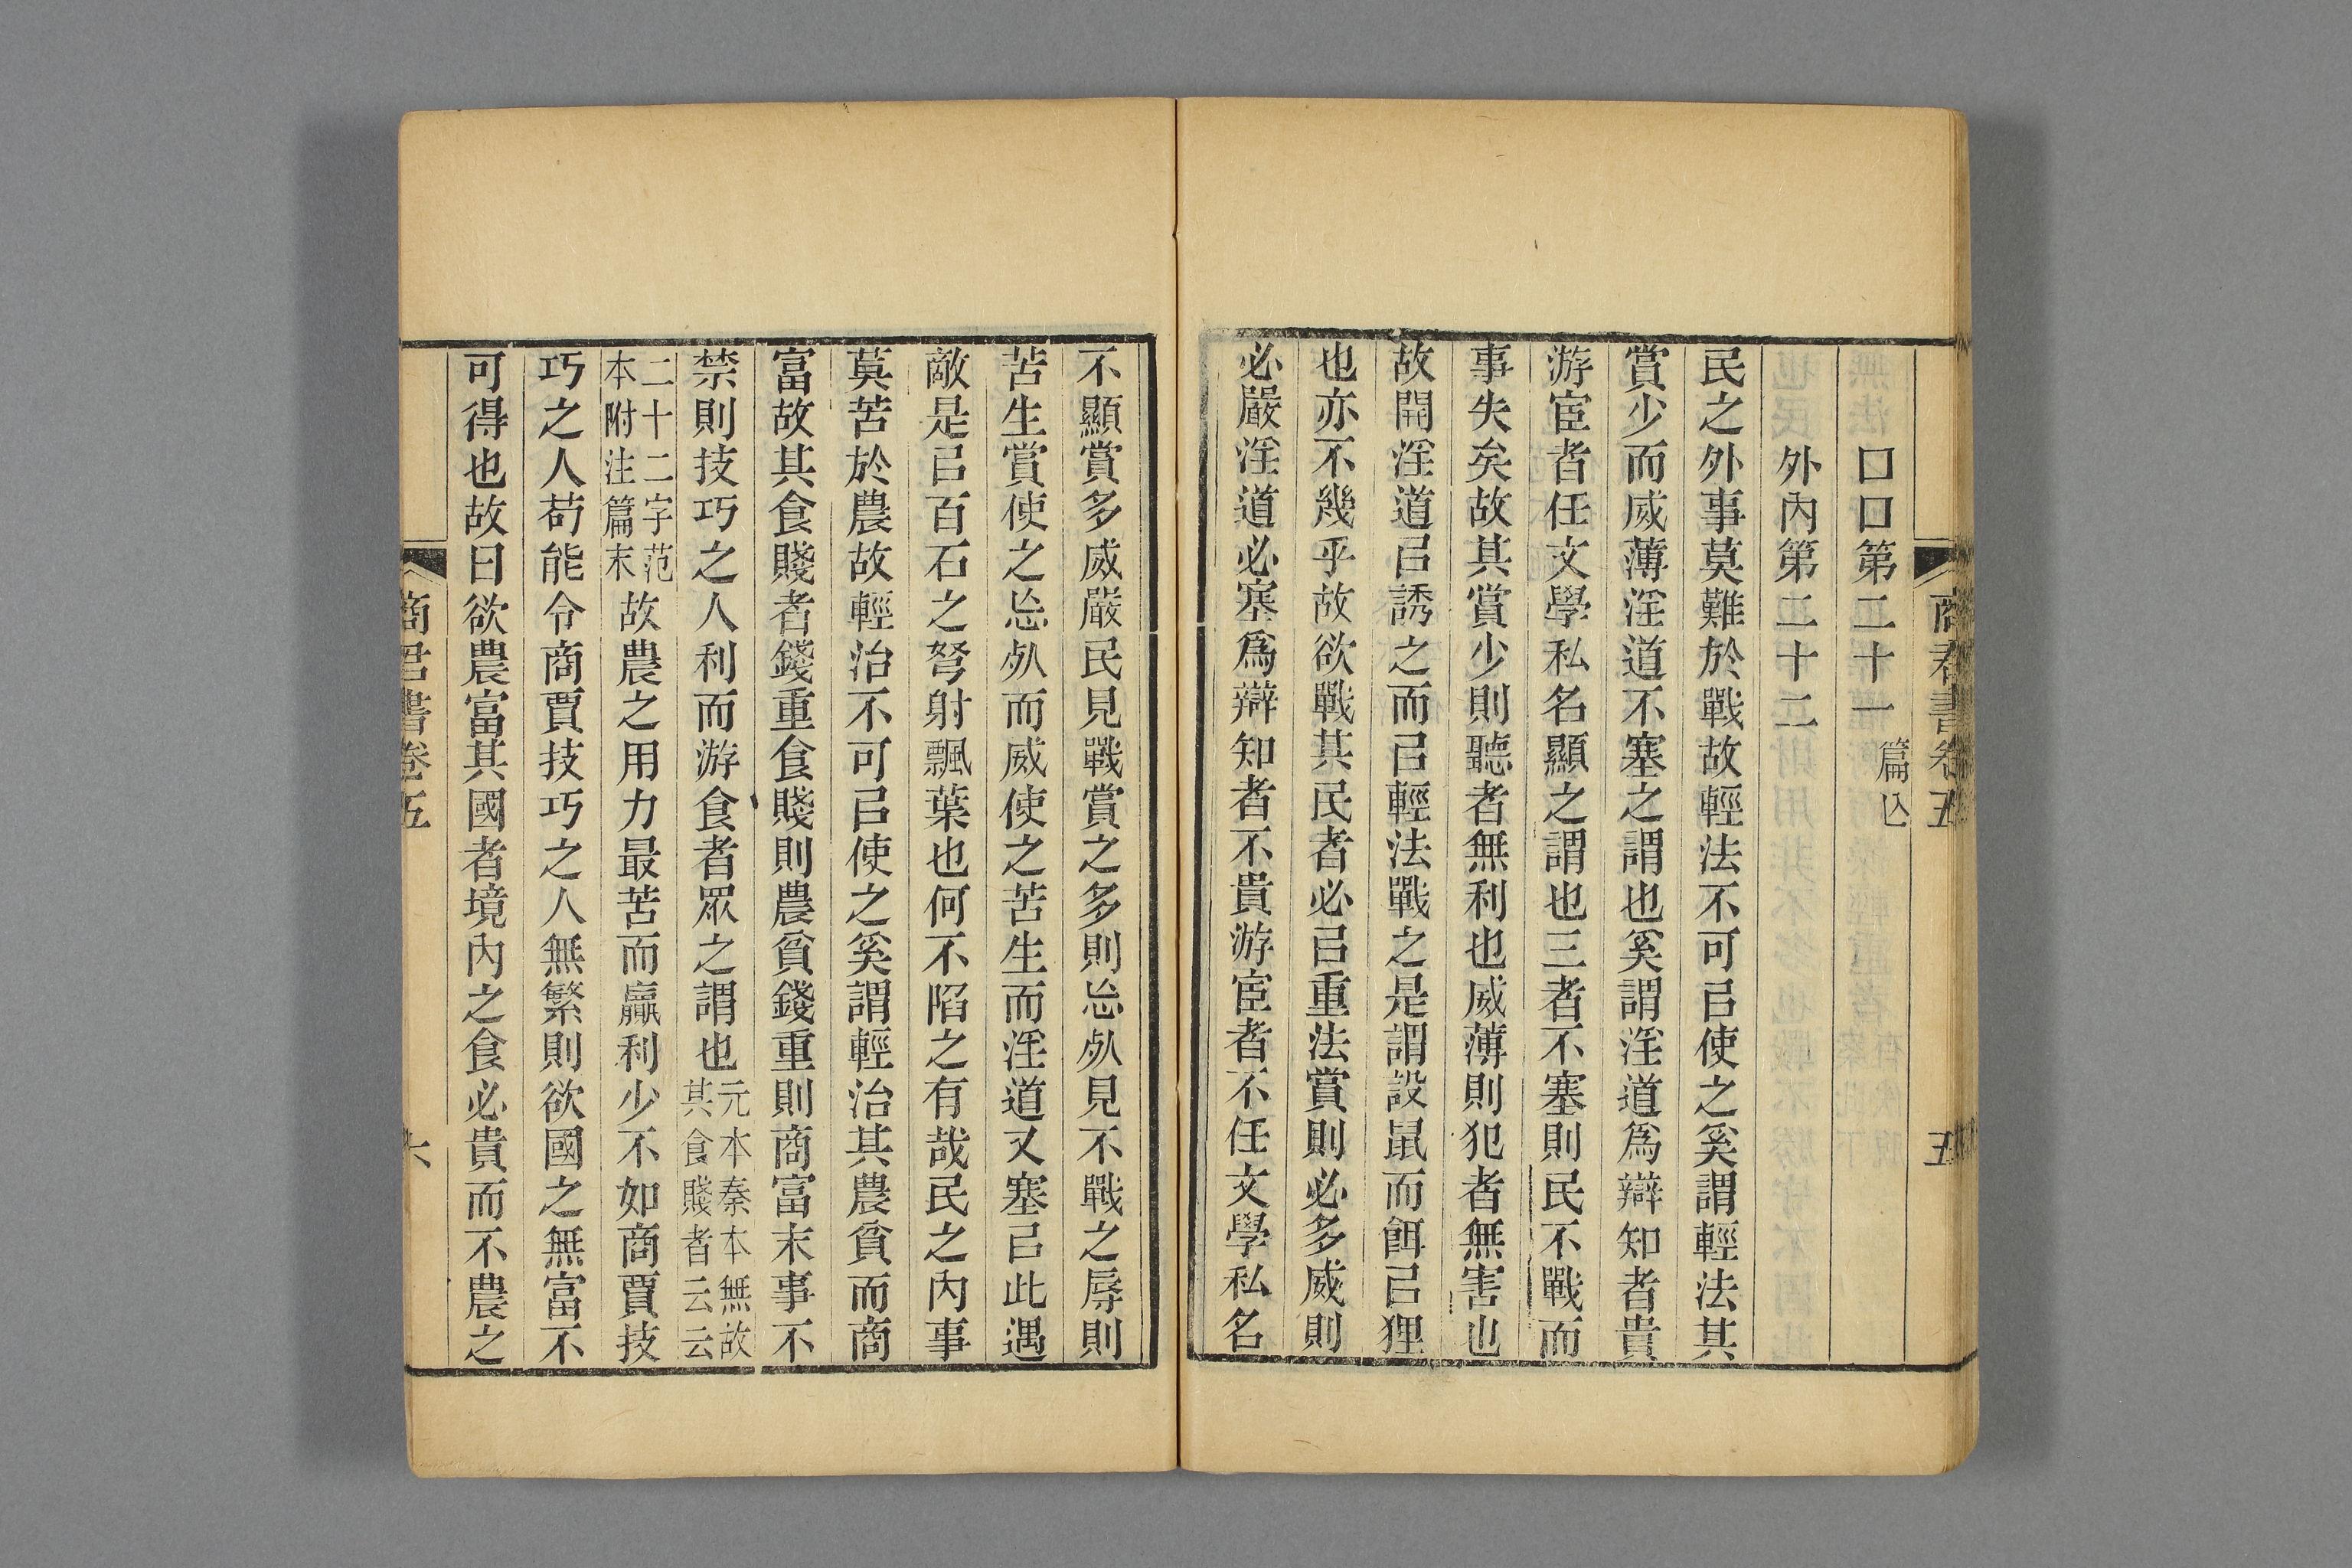 商君書卷五
五
口口第二十一篇亾
外內第二十二
民之外事莫難於戰故輕法不可㠯使之奚謂輕法其
賞少而威薄淫道不塞之謂也奚謂淫道爲辯知者貴
游宦者任文學私名顯之謂也三者不塞則民不戰而
事失矣故其賞少則聽者無利也威薄則犯者無害也
故開淫道㠯誘之而㠯輕法戰之是謂設鼠而餌㠯狸
也亦不幾乎故欲戰其民者必㠯重法賞則必多威則
必嚴淫道必塞爲辯知者不貴游宦者不任文學私名
不顯賞多威嚴民見戰賞之多則忘𣦸見不戰之辱則
苦生賞使之忘𣦸而威使之苦生而淫道又塞㠯此遇
敵是㠯百石之弩射飄葉也何不陷之有哉民之內事
莫苦於農故輕治不可㠯使之奚謂輕治其農貧而商
富故其食賤者錢重食賤則農貧錢重則商富末事不
禁則技巧之人利而游食者眾之謂也元本秦本無故其食賤者云云
二十二字范本附注篇末故農之用力最苦而贏利少不如商賈技
巧之人苟能令商賈技巧之人無繁則欲國之無富不
可得也故曰欲農富其國者境內之食必貴而不農之
商君書卷五
六